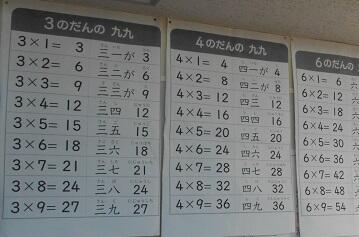 3のだんの 九九
3×1= 3 三一が 3
3×2= 6 三二が 6
3×3= 9 三三が 9
3×4= 12 三四 12
3×5= 15 三五 15
3×6= 18 三六 18
3×7= 21 三七 21
3×8= 24 三八 24
3×9= 27 三九 27
4のだんの 九九
4×1= 4 四一が 4
4×2= 8 四二が 8
4×3= 12 四三 12
4×4= 16 四四 16
4×5= 20 四五 20
4×6= 24 四六 24
4×7= 28 四七 28
4×8= 32 四八 32
4×9= 36 四九 36
6のだんの
6×1= 6 六
6×2= 12 六
6×3= 18 六
6×4= 24 六
6×5= 30 六
6×6= 36 六
6×7= 42 六
6×8= 48 六
6×9= 54 六